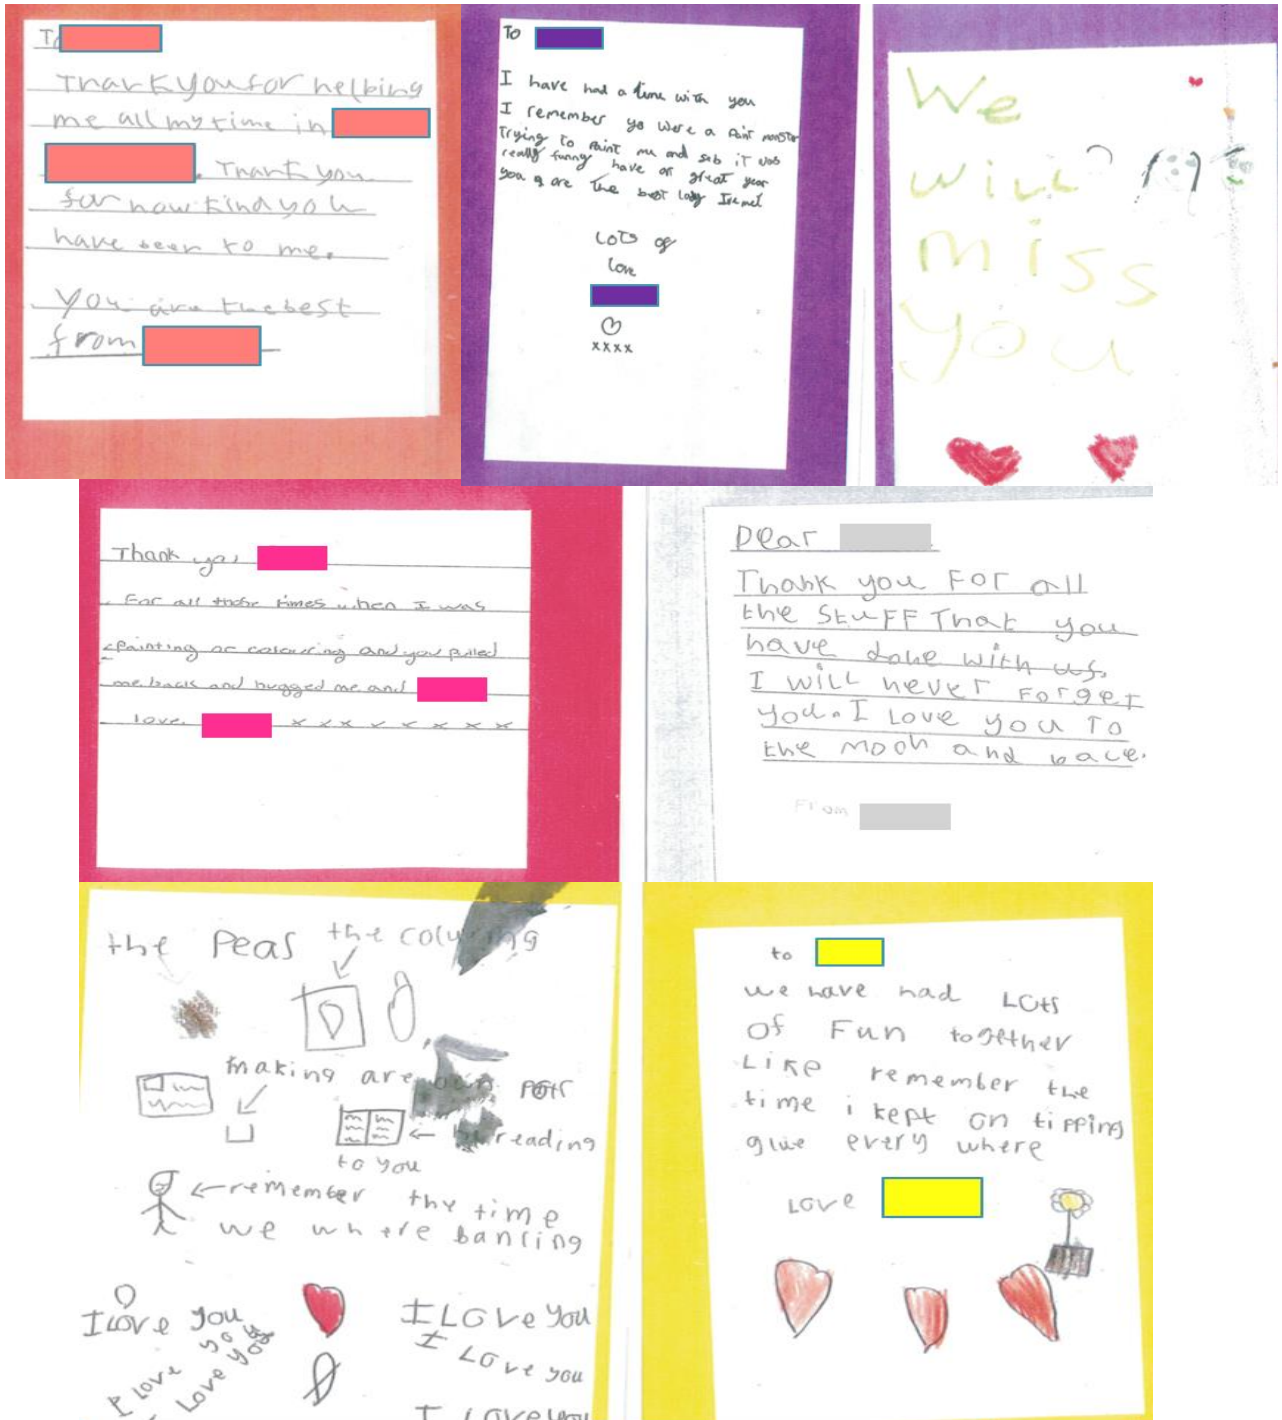 To
Thank you for helping
me all my time in
Thank you
for how kind you
have been to me.
You are the best
from
To
I have had a time with you
I remember yo were a paint monster
Trying to paint me and seb it was
really funny have a great year
you are the best lady I
LOTS of
love
xxxx
We
will
miss
you
Thank you
For all those times when I was
painting or colouring and you pulled
me back and hugged me and
love x x x x x x x x
Dear
Thank you For all
the StuFF That you
have done with us.
I will never Forget
you. I Love you To
the moon and back.
From
the Peas the colouring
making are own Pots
reading
to you
remember the time
we where bancing
I Love you
I Love you
I Love you
I LOVe You
I LOVe you
I LOVe you
to
we have had Lots
Of Fun together
Like remember the
time i kept on tipping
glue every where
Love